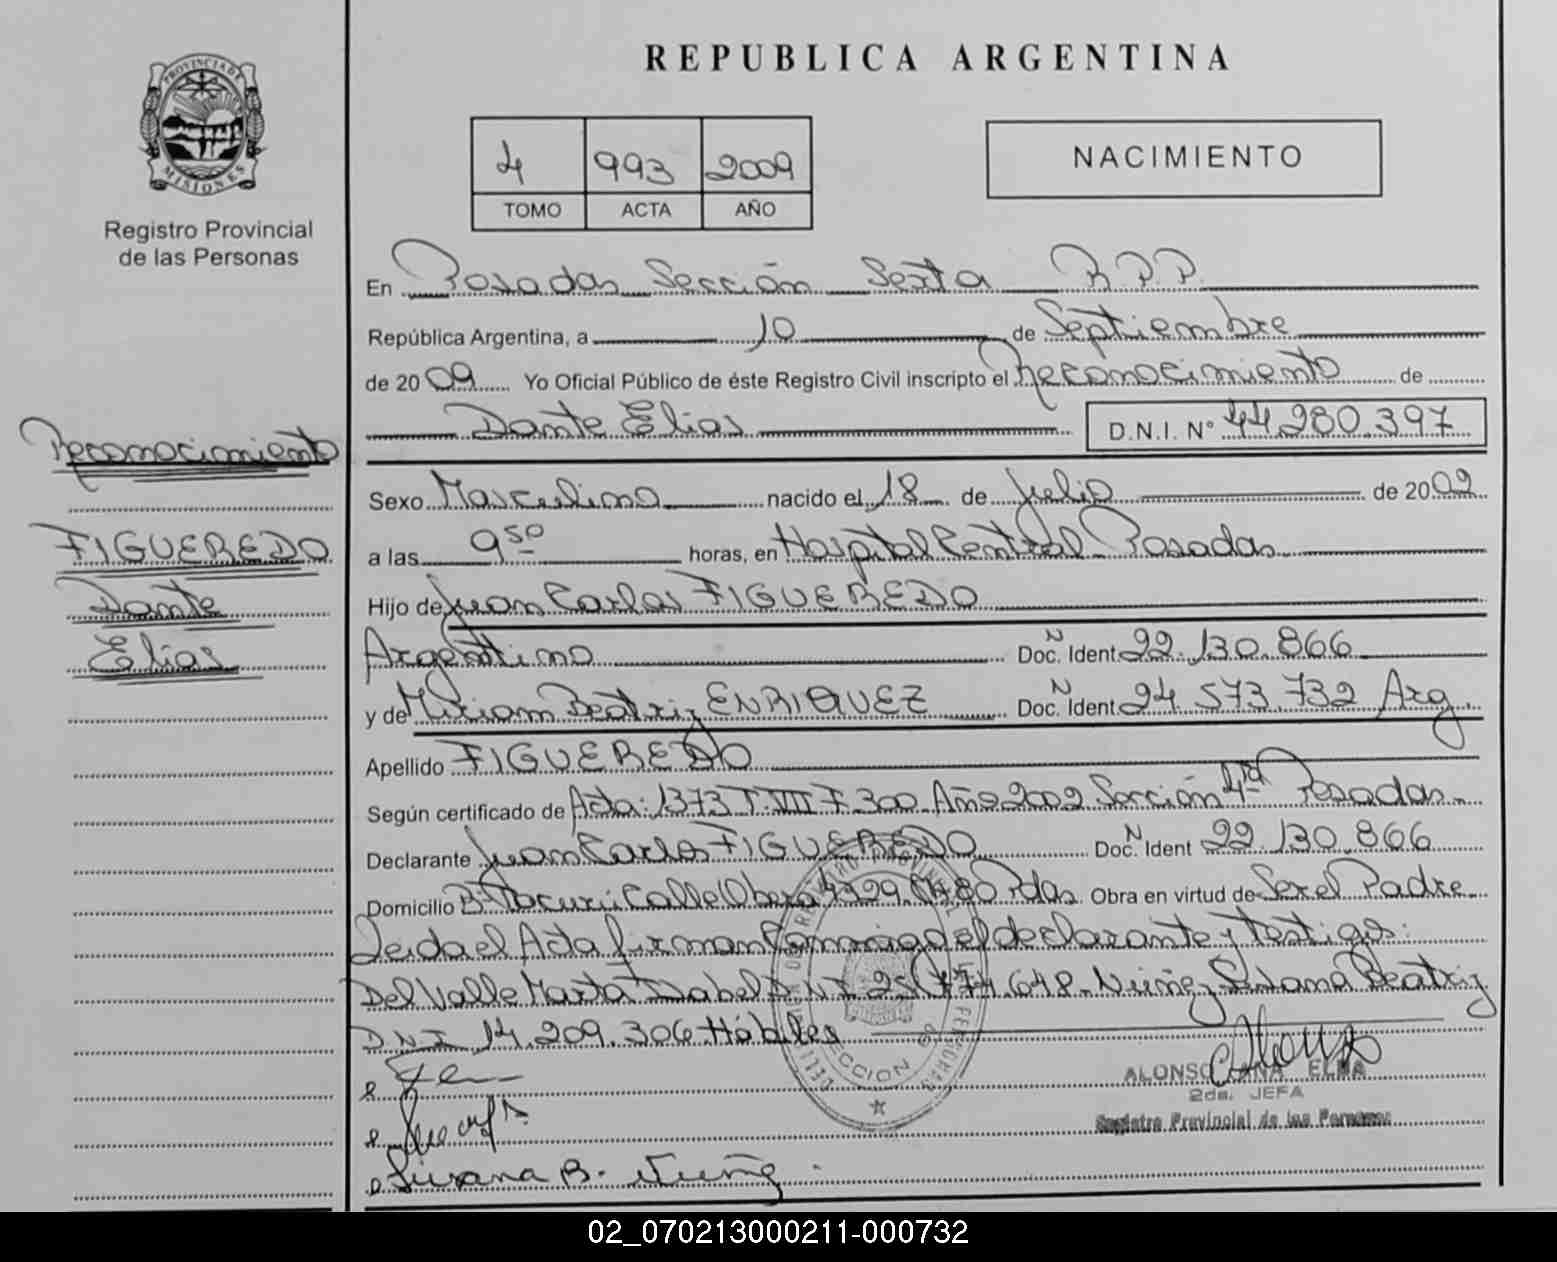 REPUBLICA ARGENTINA
PROVINCIA DE
MISIONES
Registro Provincial
de las Personas
4 993 2009
TOMO ACTA AÑO
NACIMIENTO
En Posadas Sección Sexta R.P.P.
República Argentina, a 10 de Septiembre
de 2009 Yo Oficial Público de éste Registro Civil inscripto el Reconocimiento de
Dante Elias D.N.I. N° 44.280.397
Reconocimiento
FIGUEREDO
Dante
Elias
Sexo Masculino nacido el 18 de Julio de 2002
a las 9 50 horas, en Hospital Central Posadas
Hijo de Juan Carlos FIGUEREDO
Argentino Doc. Ident N 22.130.866
y de Miriam Beatriz ENRIQUEZ Doc. Ident N 24.573.732 Arg.
Apellido FIGUEREDO
Según certificado de Acta: 1373 T. VIII F. 300 Año 2002 Sección 4ta Posadas
Declarante Juan Carlos FIGUEREDO Doc. Ident N 22.130.866
Domicilio B° Tacurú Calle Obera Pdas. Obra en virtud de Ser el Padre
Leida el Acta firman Conmigo el declarante y testigos:
Del Valle Marta Isabel D.N.I 25.774.648 - Nuñez Susana Beatriz
D.N.I 14.209.306 Hábiles
SECCION 6°
ALONSO ELBA
2da. JEFA
Registro Provincial de las Personas
Susana B. Nuñez.
02_070213000211-000732